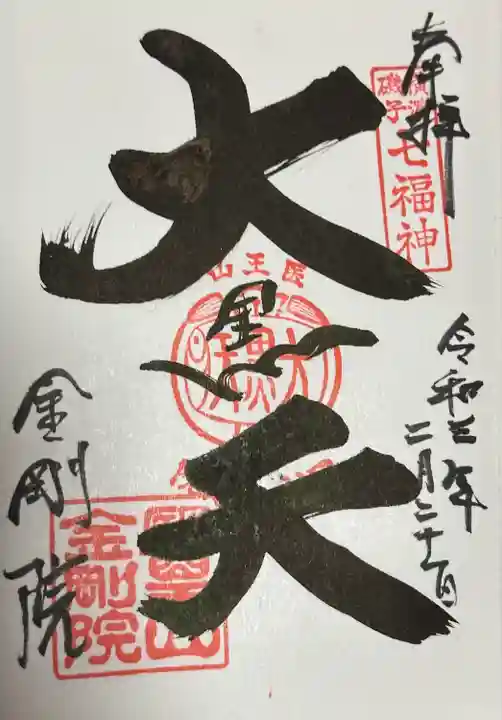 奉拝
横浜
磯子
七福神
令和三年
二月二十一日
大黒天
医王山
金剛院
医王山
金剛院